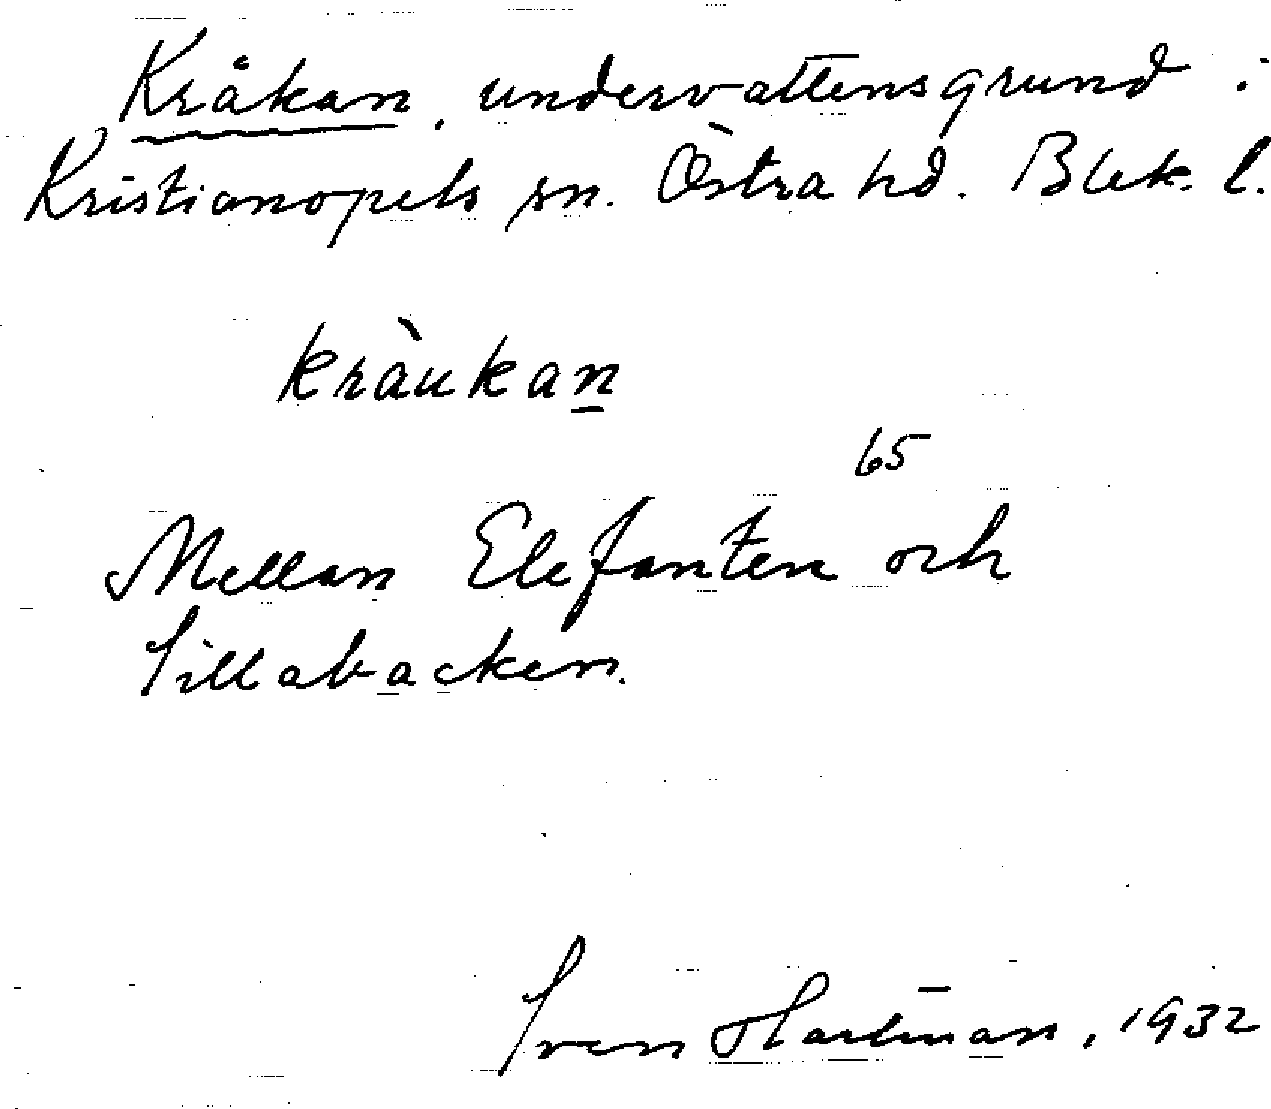 Kråkan, undervattensgrund i
Kristianopels sn. Östra hd. Blek. l.
kràukan
65
Mellan Elefanten och
Sillabacken.
Sven Hartman, 1932